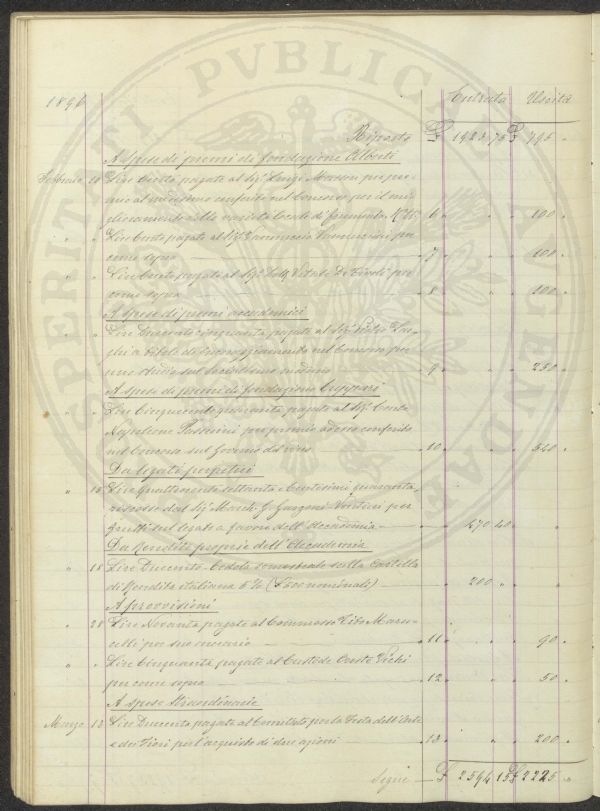 PROSPERITATI PVBLICAE AVGENDAE
Entrata Uscita
1896
Riporto £ 1923 75 £ 795 "
A Spese di premi di fondazione Alberti
Febbraio 10 Lire Cento pagate al Sig. Luigi pre-
mio al medesimo conferito nel Concorso per il mi-
glioramento delle varietà locali di frumento 6 " " " 100 "
" " Lire Cento pagate al Sig. Vannuccio Vannuccini per
come sopra 7 " " " 100 "
" " Lire Cento pagate al Sig. Vitale De Tivoli per
come sopra 8 " " " 100 "
A Spese di premi accademici
" " Lire Duecento cinquanta pagate al Sig.
a titolo di incoraggiamento nel Concorso per
uno studio sul Socialismo 9 " " " 250 "
A Spese di premi di fondazione Cuppari
" " Lire Cinquecento quaranta pagate al Sig. Conte
Napoleone Passerini per premio ad esso conferito
nel Concorso sul Governo del vino 10 " " " 540 "
Da legati perpetui
" 15 Lire Quattrocento settanta e Centesimi quaranta,
riscosse dal Sig. March. G. Garzoni Venturi per
frutti sul legato a favore dell'Accademia " 470 40 " "
Da Rendite proprie dell'Accademia
" 18 Lire Duecento Cedola semestrale sulla Cartella
di Rendita italiana 5% nominali) " 200 " " "
A provvisioni
" 28 Lire Novanta pagate al Commesso Vito Maru-
celli per suo onorario 11 " " " 90 "
" " Lire Cinquanta pagate al Custode Vichi
per come sopra 12 " " " 50 "
A Spese Straordinarie
Marzo 13 Lire Duecento pagate al Comitato per le Feste dell'Arte
e dei Fiori per l'acquisto di due azioni 13 " " " 200 "
Segue £ 2594 15 £ 2225 "